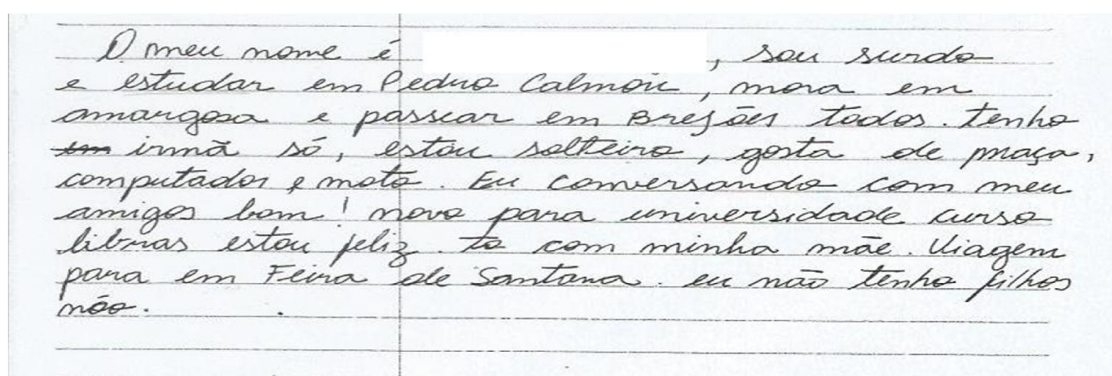 O meu nome é , sou surdo
e estudar em Pedro Calmon, mora em
amargosa e passear em Brejões todos. tenho
irmã só, estou solteiro, gosta de praça,
computador e moto. Eu conversando com meu
amigos bom! novo para universidade curso
libras estou feliz. to com minha mãe. Viagem
para em Feira de Santana. eu não tenho filhos
não.